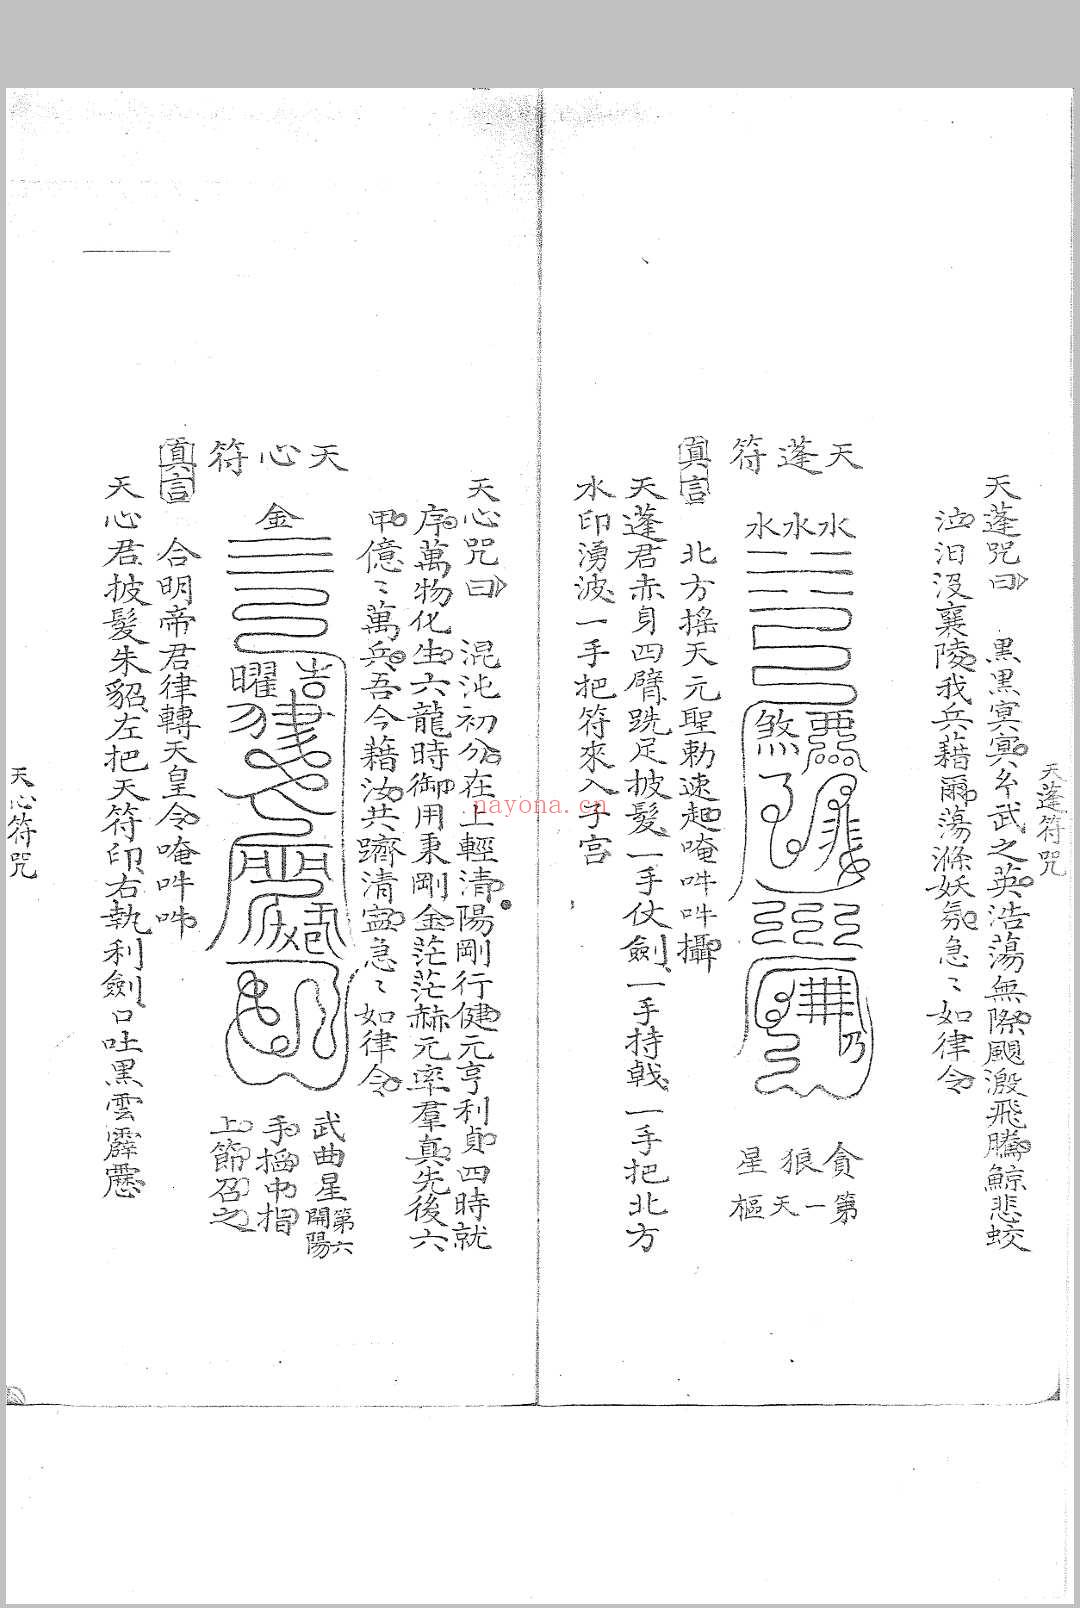 天蓬符咒
天蓬咒曰　黑黑冥冥玄武之英浩蕩無際颶激飛騰鯨悲蛟
泣汩沒襄陵我兵藉爾蕩滌妖氛急〻如律令
天蓬符
水水水
煞
乃
貪狼星
第一天樞
真言　北方搖天元聖勅速起唵吽吽攝
天蓬君赤身四臂跣足披髮一手仗劍一手持戟一手把北方
水印湧波一手把符來入子宮
天心咒曰　混沌初分在上輕清陽剛行健元亨利貞四時就
序萬物化生六龍時御用秉剛金茫茫赫元率羣真先後六
甲億〻萬兵吾今藉汝共躋清寍急〻如律令
天心符
金
曜
武曲星第六開陽
手掐中指
上節召之
真言　合明帝君律轉天皇令唵吽吽
天心君披髮朱貂左把天符印右執利劍口吐黑雲霹靂
天心符咒
nayona.cn